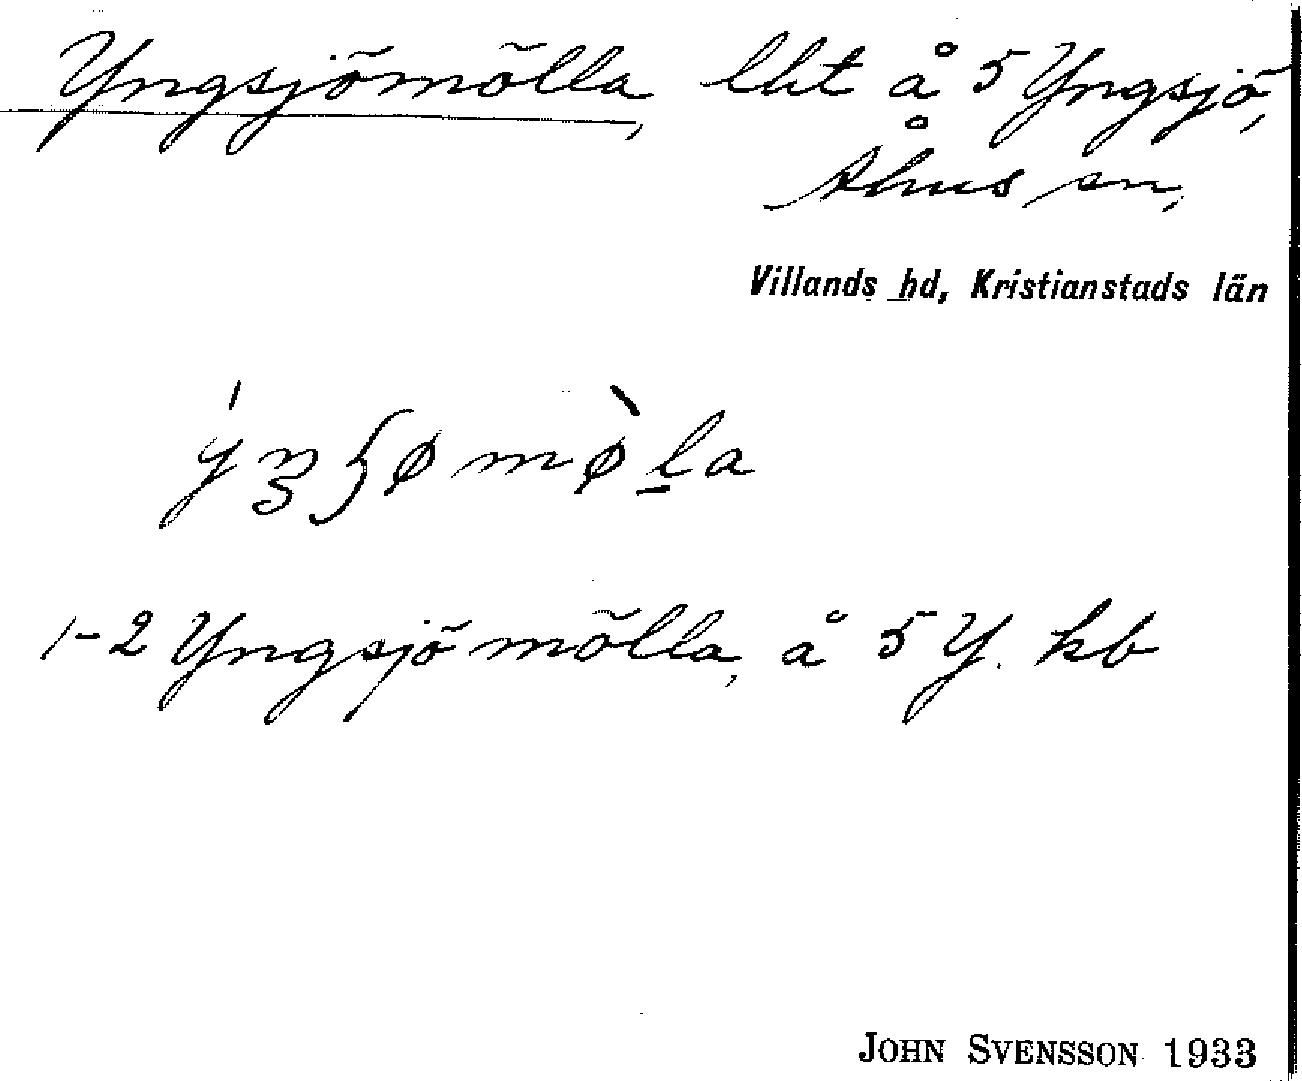 Yngsjömölla, lht å 5 Yngsjö,
Åhus sn,
Villands hd, Kristianstads län
1-2 Yngsjömölla, å 5 Y. kb
JOHN SVENSSON 1933